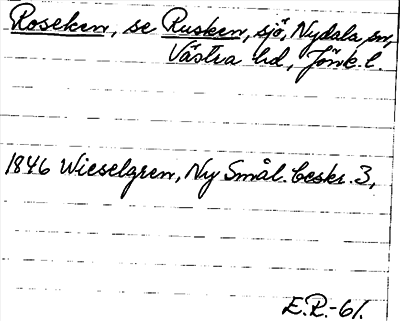 Roseken, se Rusken, sjö, Nydala sn,
Västra hd, Jönk. l.
1846 Wieselgren, Ny Smål. beskr. 3,
E.R.-61.